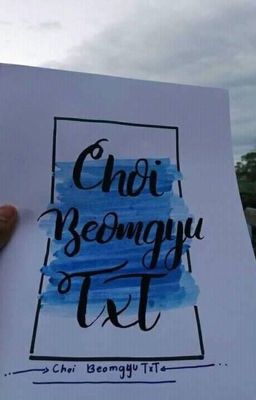 Choi
Beomgyu
TxT
Choi Beomgyu TxT